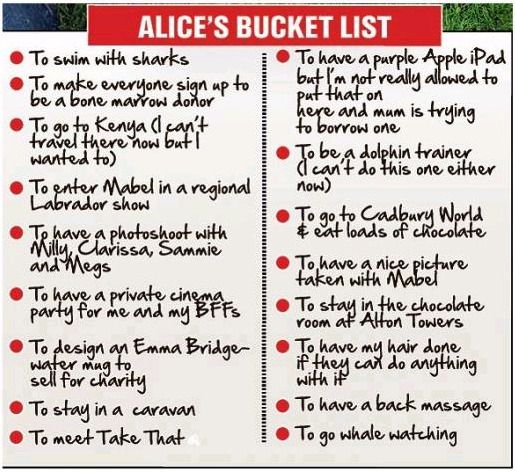 ALICE'S BUCKET LIST
To swim with sharks
To make everyone sign up to
be a bone marrow donor
To go to Kenya (I can't
travel there now but I
wanted to)
To enter Mabel in a regional
Labrador show
To have a photoshoot with
Milly, Clarissa, Sammie
and Megs
To have a private cinema
party for me and my BFFs
To design an Emma Bridge-
water mug to
sell for charity
To stay in a caravan
To meet Take That
To have a purple Apple iPad
but I'm not really allowed to
put that on
here and mum is trying
to borrow one
To be a dolphin trainer
(I can't do this one either
now)
To go to Cadbury World
& eat loads of chocolate
To have a nice picture
taken with Mabel
To stay in the chocolate
room at Alton Towers
To have my hair done
if they can do anything
with it
To have a back massage
To go whale watching